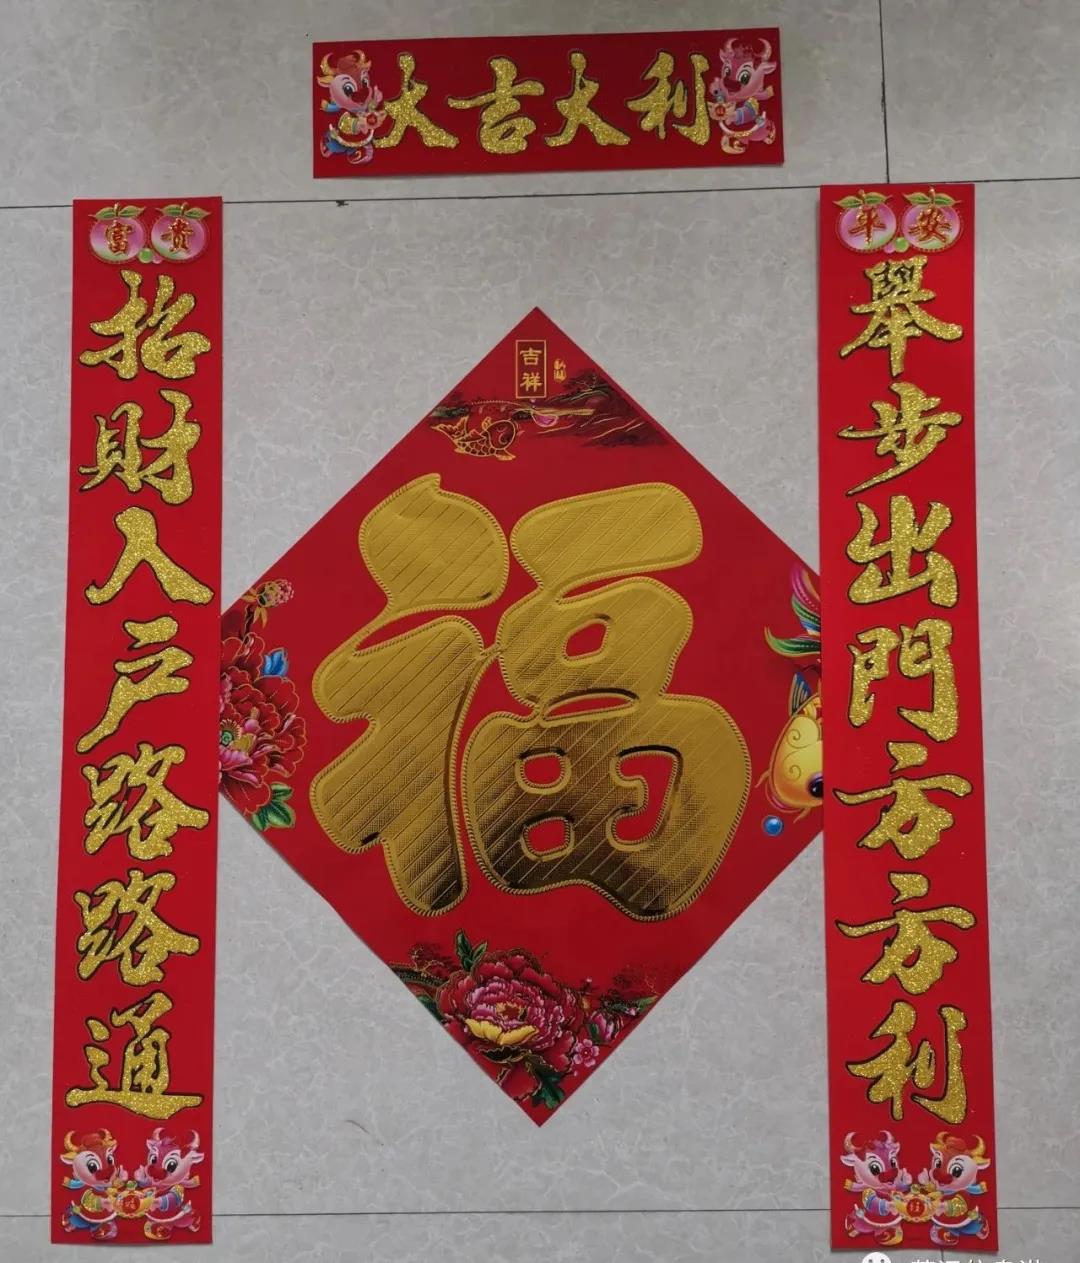 大吉大利
平安
舉步出門方方利
富貴
招財入户路路通
吉祥
福